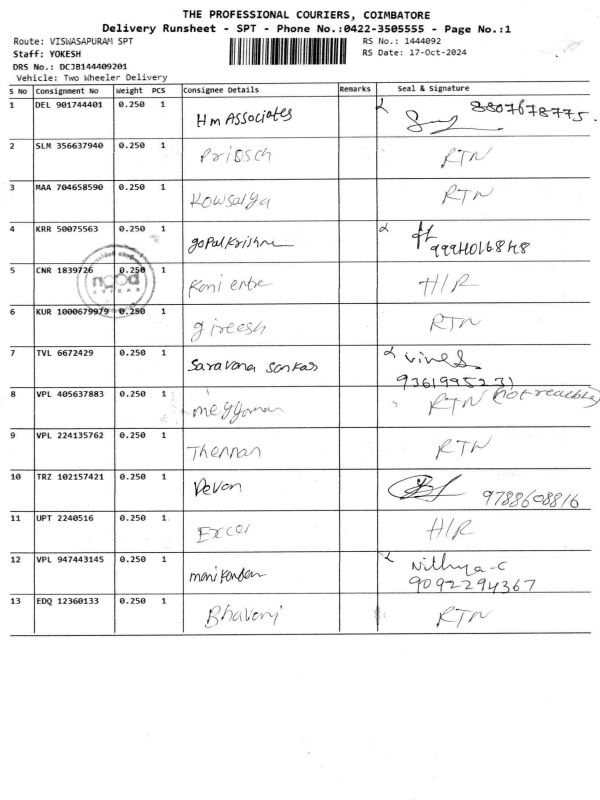 THE PROFESSIONAL COURIERS, COIMBATORE
Delivery Runsheet - SPT - Phone No.:0422-3505555 - Page No.:1
Route: VISWASAPURAM SPT
RS No.: 1444092
Staff: YOKESH
RS Date: 17-Oct-2024
DRS No.: DCJB144409201
Vehicle: Two Wheeler Delivery
S No Consignment No Weight PCS Consignee Details Remarks Seal & Signature
1 DEL 901744401 0.250 1 Hm Associates 8807678775.
2 SLM 356637940 0.250 1 RTN
3 MAA 704658590 0.250 1 Kowsalya RTN
4 KRR 50075563 0.250 1 gopalkrishna 9994016848
5 CNR 1839726 0.250 1 H/R
6 KUR 1000679979 0.250 1 gireesh RTN
7 TVL 6672429 0.250 1 Saravana Sankar
9361995231
8 VPL 405637883 0.250 1 RTN (not reachble)
9 VPL 224135762 0.250 1 Thennan RTN
10 TRZ 102157421 0.250 1 Devan 9788608816
11 UPT 2240516 0.250 1 Excel H/R
12 VPL 947443145 0.250 1 manikandan Nithya-C
9092294367
13 EDQ 12360133 0.250 1 Bhavani RTN